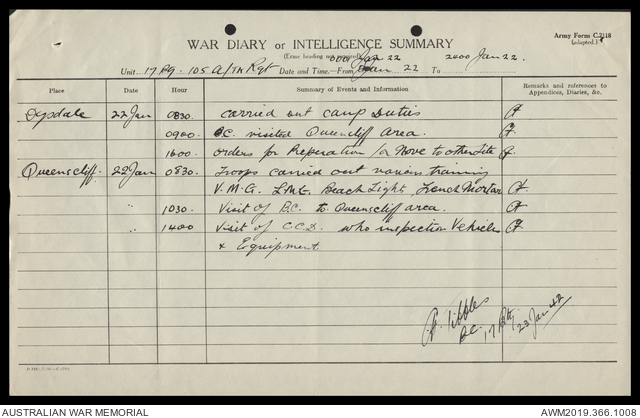 Army Form C.2118
(adapted.)
WAR DIARY or INTELLIGENCE SUMMARY
(Erase heading not required)
Unit 17 Bty. 105 A/Tk Rgt Date and Time—From 0001 Jan 22 To 2400 Jan 22.
Place Date Hour Summary of Events and Information Remarks and references to Appendices, Diaries, &c.
Dysdale 22 Jan 0830. Carried out camp Duties
0900. B.C. visited Queenscliff area.
1600. Orders for Preparation for Move to other site
Queenscliff. 22 Jan 0830. Troops carried out various training
V.M.G. L.M.G. Beach Light, Trench Mortar
" 1030. Visit of B.C. to Queenscliff area.
" 1400 Visit of C.C.D. who inspection Vehicles
& Equipment
Tibbles
B.C. 17 Bty.
23 Jan 42
AUSTRALIAN WAR MEMORIAL
AWM2019.366.1008